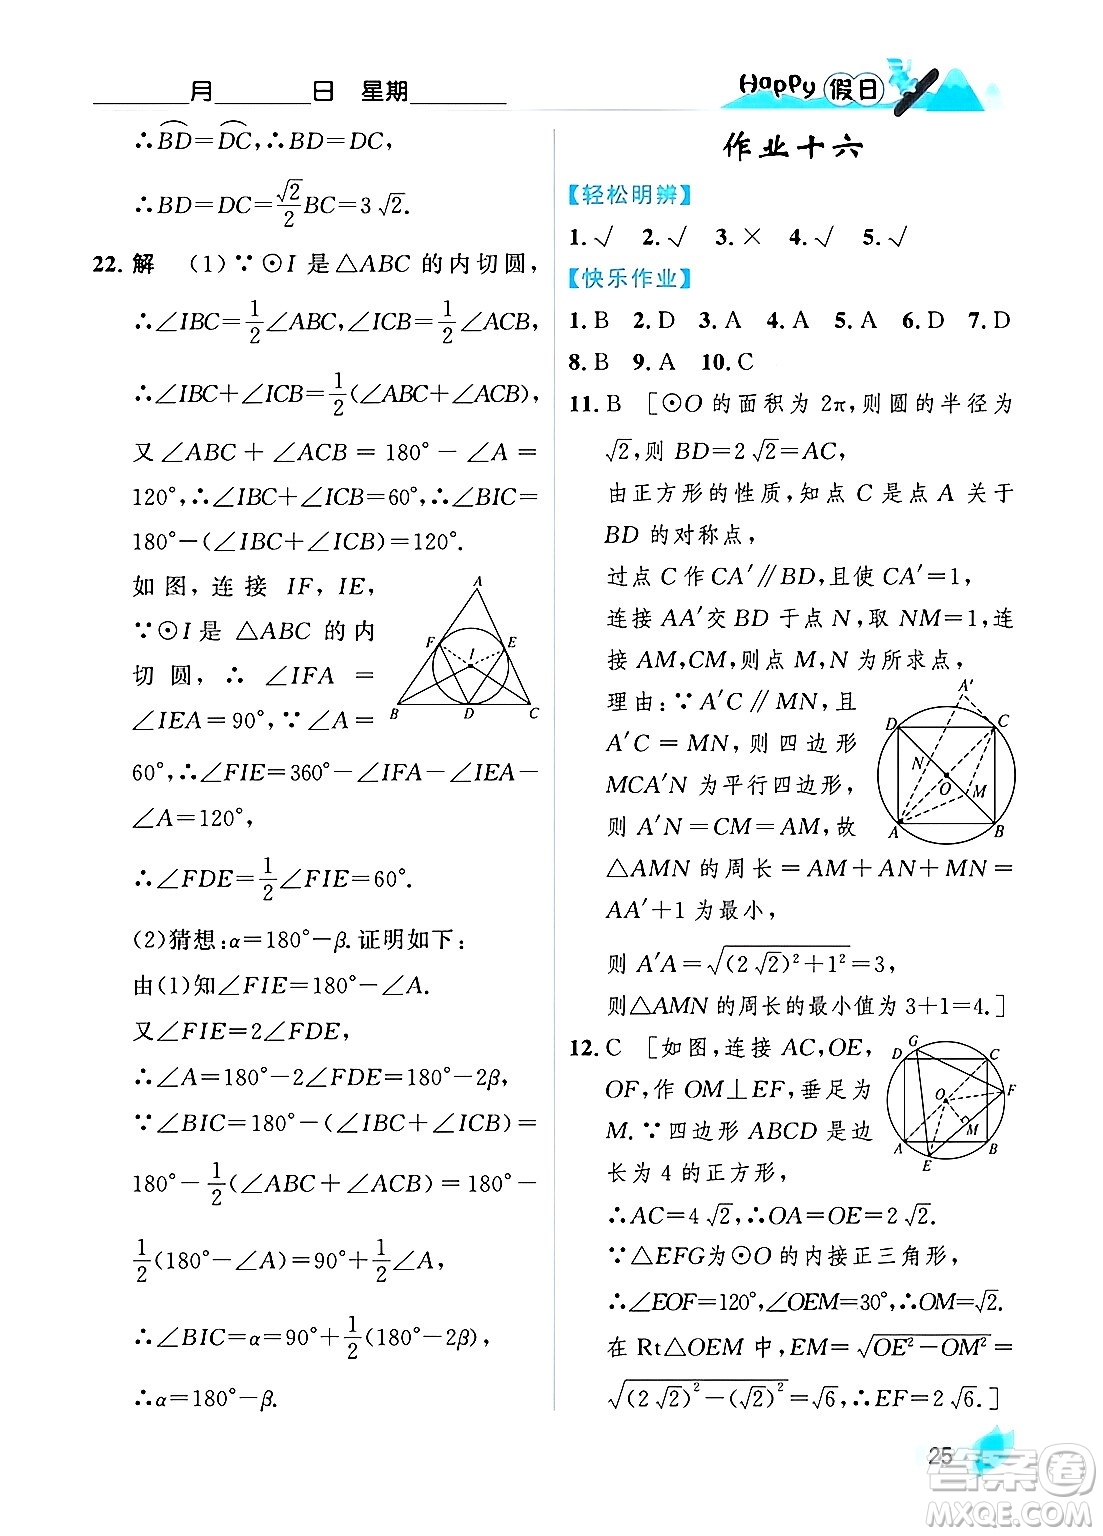 ______月______日 星期______
Happy假日
∴BD⌢=DC⌢,∴BD=DC,
∴BD=DC=√2/2BC=3√2.
22. 解 (1)∵⊙I是△ABC的内切圆,
∴∠IBC=1/2∠ABC,∠ICB=1/2∠ACB,
∴∠IBC+∠ICB=1/2(∠ABC+∠ACB),
又∠ABC+∠ACB=180°-∠A=
120°,∴∠IBC+∠ICB=60°,∴∠BIC=
180°-(∠IBC+∠ICB)=120°.
如图,连接 IF, IE,
∵⊙I是△ABC的内
切圆,∴∠IFA=
∠IEA=90°,∵∠A=
60°,∴∠FIE=360°-∠IFA-∠IEA-
∠A=120°,
∴∠FDE=1/2∠FIE=60°.
A
F
E
I
B
D
C
(2)猜想:α=180°-β.证明如下:
由(1)知∠FIE=180°-∠A.
又∠FIE=2∠FDE,
∴∠A=180°-2∠FDE=180°-2β,
∵∠BIC=180°-(∠IBC+∠ICB)=
180°-1/2(∠ABC+∠ACB)=180°-
1/2(180°-∠A)=90°+1/2∠A,
∴∠BIC=α=90°+1/2(180°-2β),
∴α=180°-β.
作业十六
【轻松明辨】
1.√ 2.√ 3.× 4.√ 5.√
【快乐作业】
1.B 2.D 3.A 4.A 5.A 6.D 7.D
8.B 9.A 10.C
11.B [⊙O的面积为2π,则圆的半径为
√2,则BD=2√2=AC,
由正方形的性质,知点C是点A关于
BD的对称点,
过点C作CA′∥BD,且使CA′=1,
连接AA′交BD于点N,取NM=1,连
接AM,CM,则点M,N为所求点,
理由:∵A′C∥MN,且
A′C=MN,则四边形
MCA′N为平行四边形,
则A′N=CM=AM,故
△AMN的周长=AM+AN+MN=
AA′+1为最小,
则A′A=√((2√2)²+1²)=3,
则△AMN的周长的最小值为3+1=4.]
A′
D
C
N
O
M
A
B
12.C [如图,连接AC,OE,
OF,作OM⊥EF,垂足为
M.∵四边形ABCD是边
长为4的正方形,
∴AC=4√2,∴OA=OE=2√2.
∵△EFG为⊙O的内接正三角形,
∴∠EOF=120°,∠OEM=30°,∴OM=√2.
在Rt△OEM中,EM=√(OE²-OM²)=
√((2√2)²-(√2)²)=√6,∴EF=2√6.]
G
D
C
O
F
M
A
B
E
25
答案圈
MXQE.COM